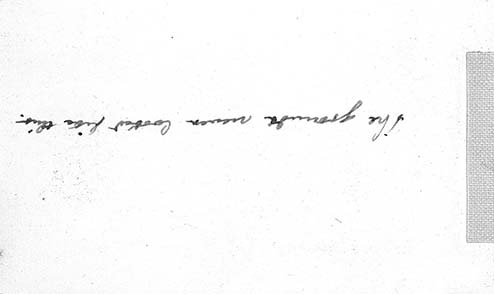 The grounds never looked like this.